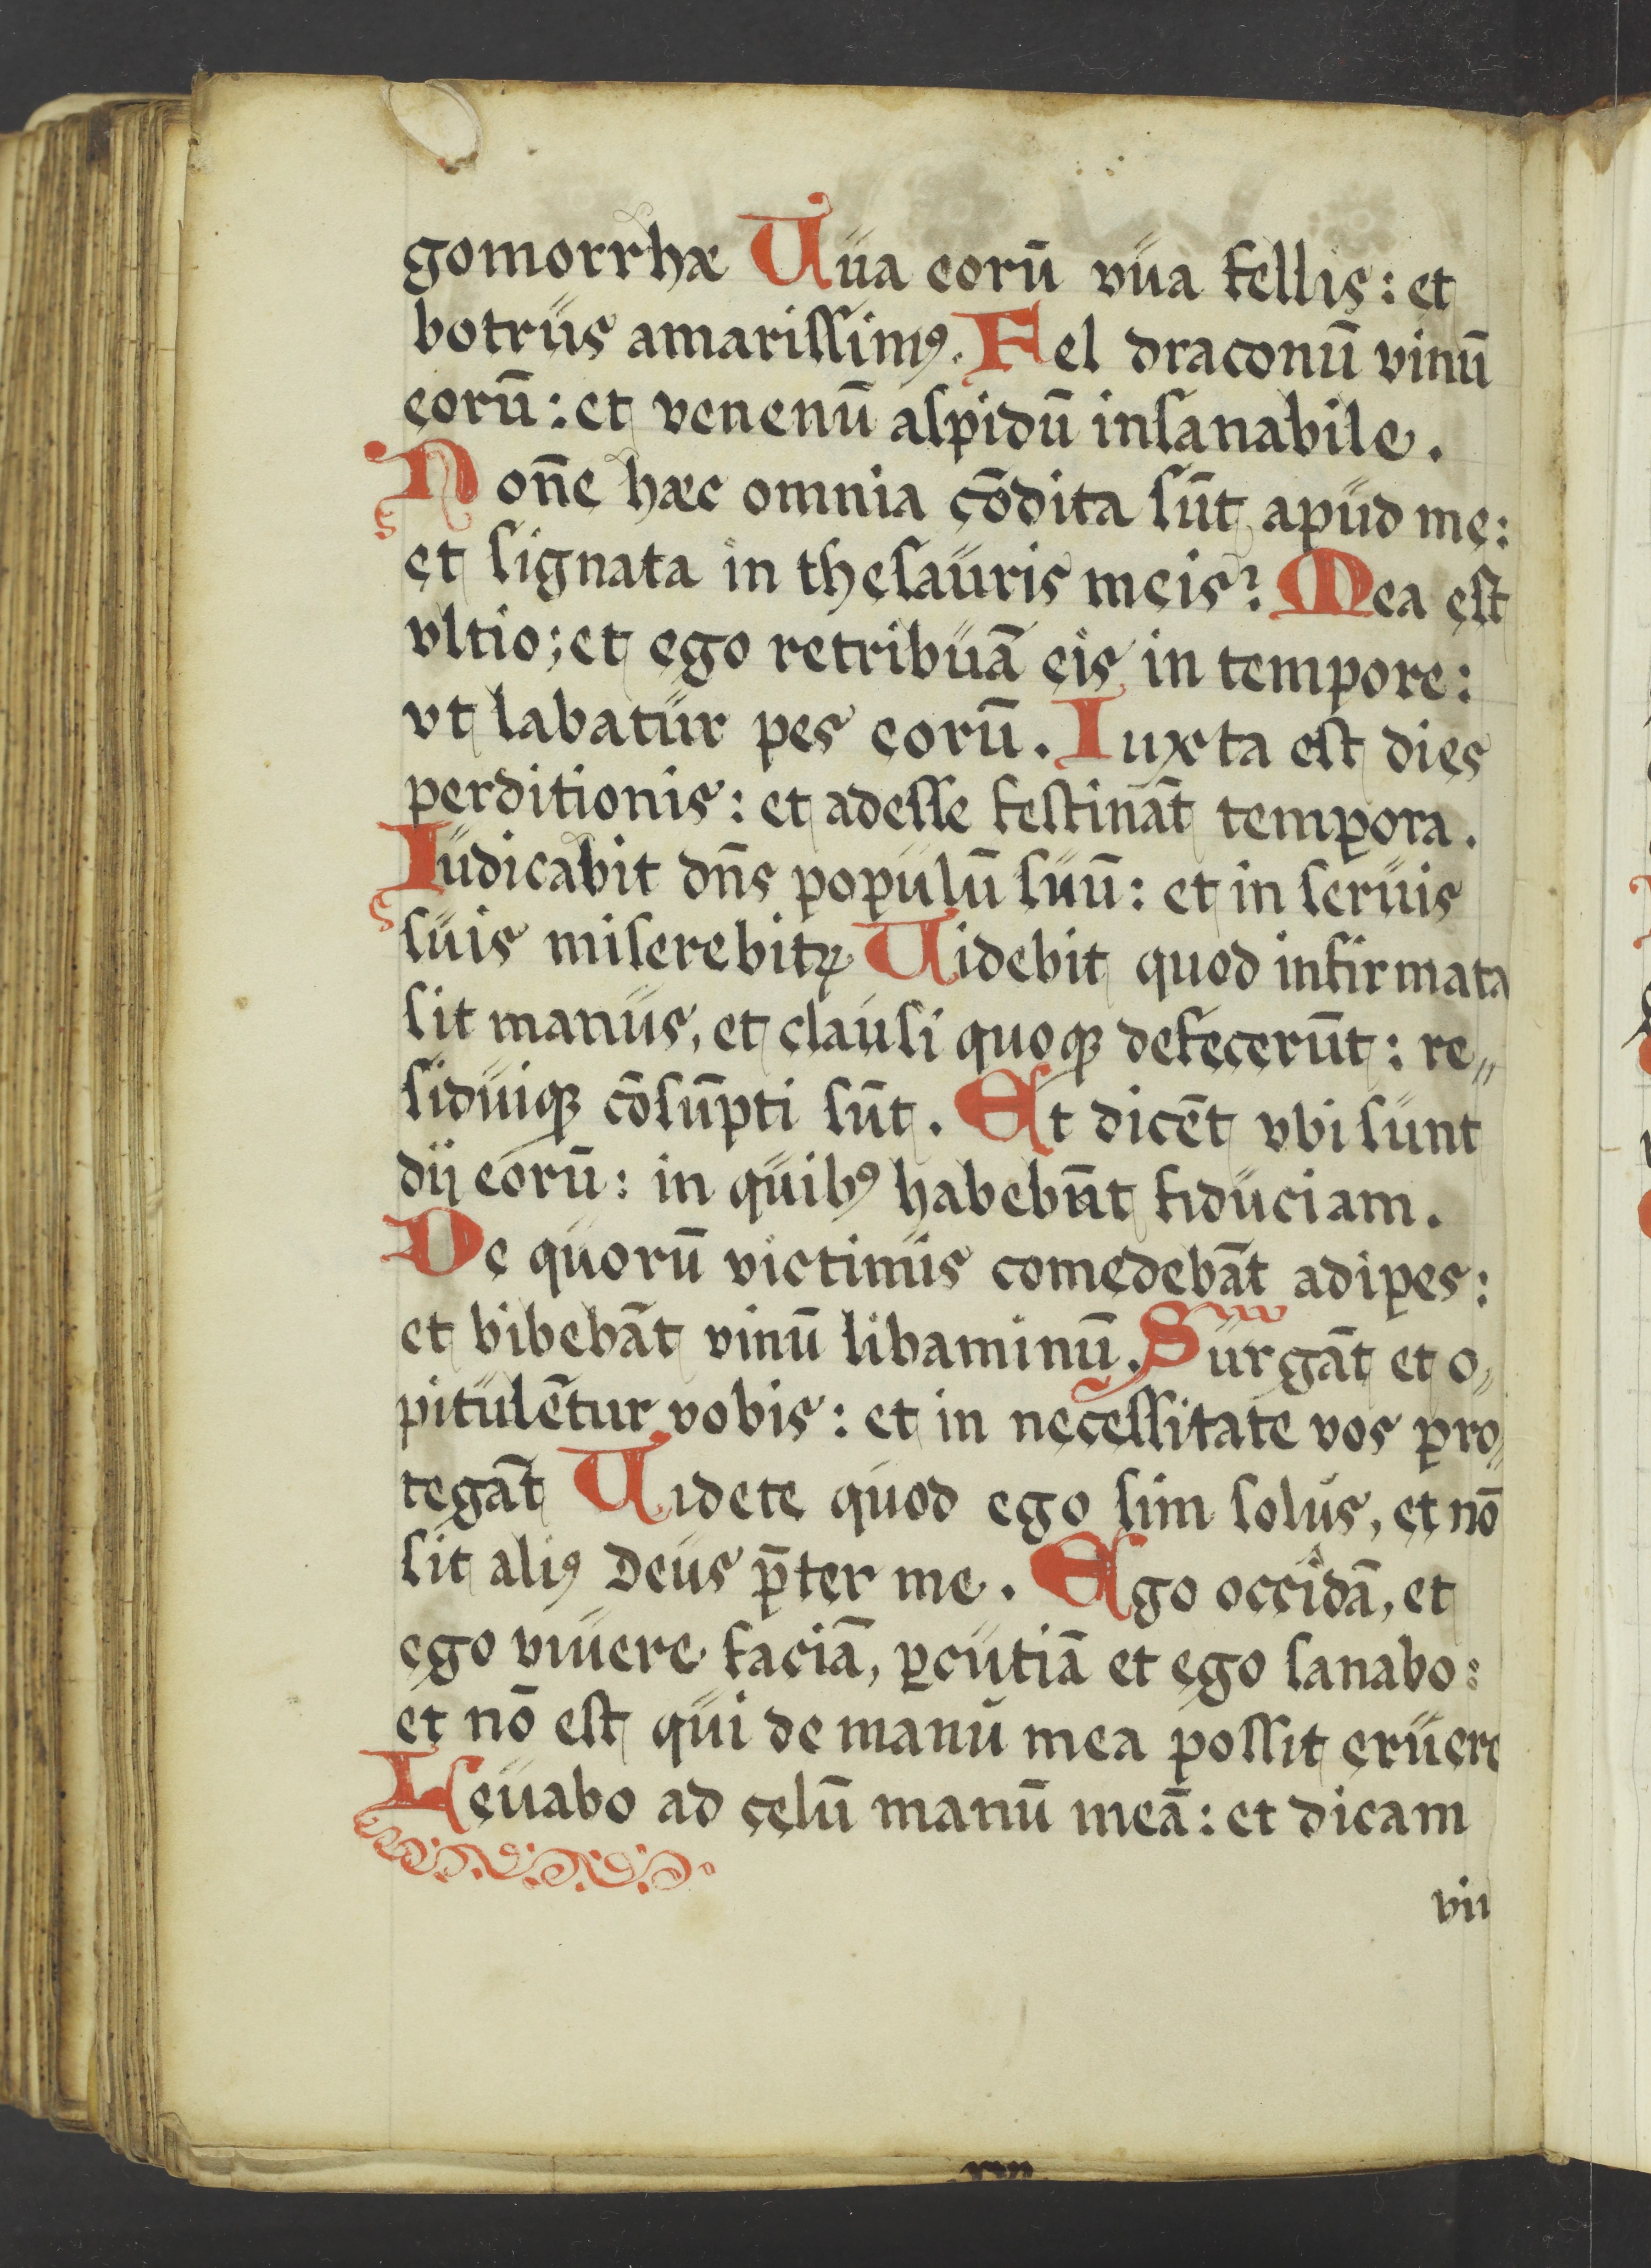 gomorrhæ Uua eorū vua fellis: et
botrus amarissimꝰ. Fel draconū vinū
eorū: et venenū aspidū insanabile.
Nōne hæc omnia cōdita sūt apud me:
et signata in thesauris meis? Mea est
vltio; et ego retribuā eis in tempore:
vt labatur pes eorū. Iuxta est dies
perditionis: et adesse festināt tempora.
Iudicabit dn̄s populū suū: et in seruis
suis miserebitꝝ Uidebit quod infirmata
sit manus, et clausi quoqꝫ defecerūt: re„
siduiqꝫ cōsūpti sūt. Et dicēt vbi sunt
dij eorū: in quibꝰ habebūt fiduciam.
De quorū victimis comedebāt adipes:
et bibebāt vinū libaminū. Surgāt et o„
pitulētur vobis: et in necessitate vos pro„
tegāt Uidete quod ego sim solus, et nō
sit aliꝰ Deus p̄ter me. Ego occidā, et
ego viuere faciā, ꝑcutiā et ego sanabo:
et nō est qui de manu mea possit eruere
Leuabo ad çelū manū meā: et dicam
viu